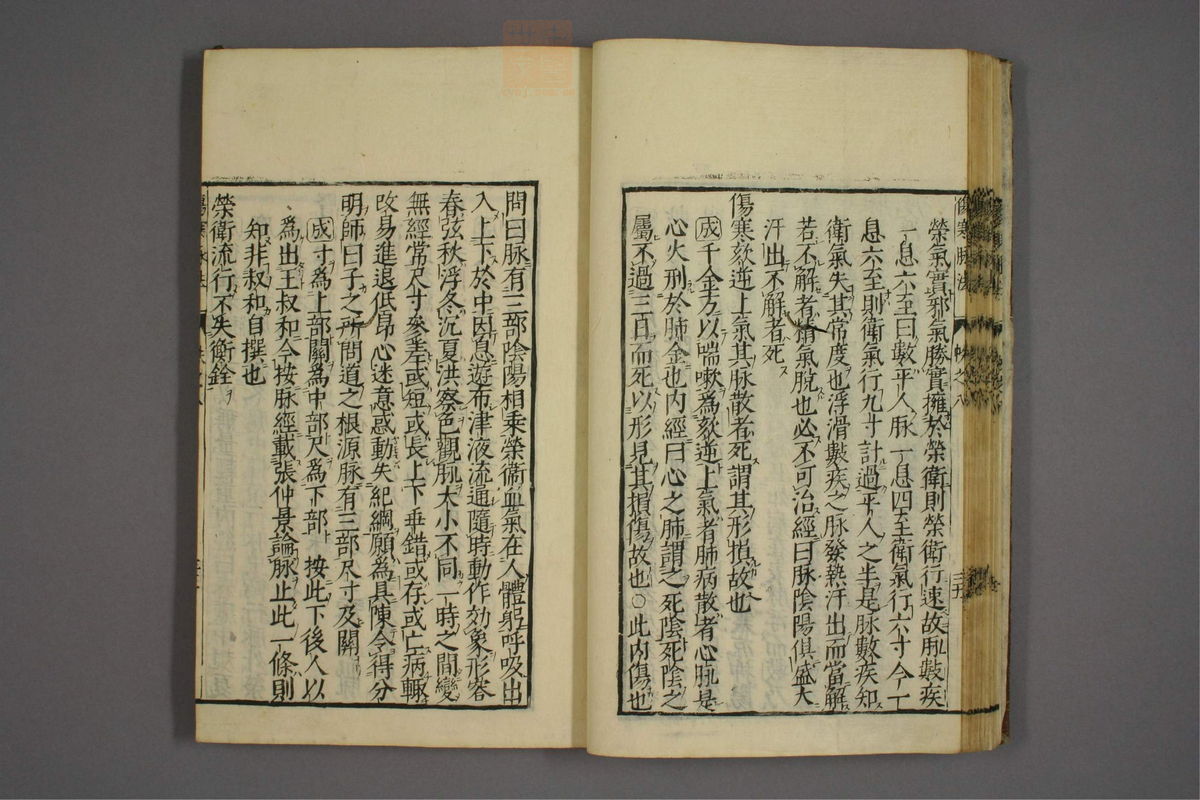 榮氣實邪氣勝實擁於榮衛則榮衛行速故脉數疾
一息六至曰數平人脉一息四至衛氣行六寸今一
息六至則衛氣行九寸計過平人之半是脉數疾知
衛氣失其常度也浮滑數疾之脉發熱汗出而當解
若不解者精氣脫也必不可治經曰脉陰陽俱盛大
汗出不解者死
傷寒欬逆上氣其脉散者死謂其形損故也
成千金方以喘嗽為欬逆上氣者肺病散者心脉是
心火刑於肺金也內經曰心之肺謂之死陰死陰之
屬不過三日而死以形見其損傷故也○此內傷也
問曰脉有三部陰陽相乘榮衛血氣在人體躬呼吸出
入上下於中因息遊布津液流通隨時動作効象形容
春弦秋浮冬沉夏洪察色觀脉大小不同一時之間變
無經常尺寸參差或短或長上下乖錯或存或亡病輙
改易進退低昂心迷意惑動失紀綱願為具陳令得分
明師曰子之所問道之根源脉有三部尺寸及關
成寸為上部關為中部尺為下部 按此下後人以
為出王叔和今按脉經載張仲景論脉止此一條則
知非叔和自撰也
榮衛流行不失衡銓